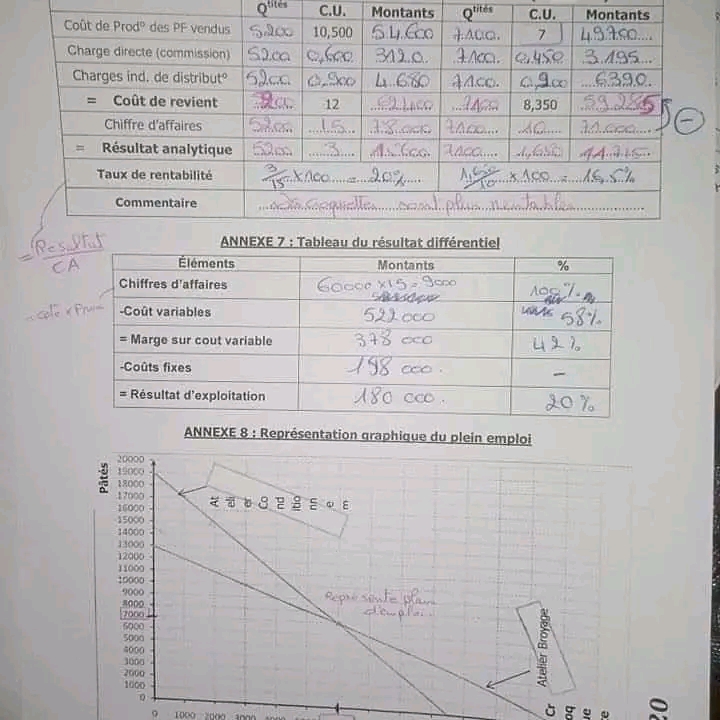 Qtités C.U. Montants Qtités C.U. Montants
Coût de Prod° des PF vendus 5200 10,500 54.600 7100 7 49700
Charge directe (commission) 5200 0,600 3120 7100 0,450 3.195
Charges ind. de distribut° 5200 0,900 4.680 7100 0,900 6390
= Coût de revient 5200 12 62400 7100 8,350 59.285
Chiffre d'affaires 5200 15 78.000 7100 10 71.000
= Résultat analytique 5200 3 15600 7100 1,650 11.715
Taux de rentabilité 3/15 x 100 = 20% 1,650/10 x 100 = 16,5%
Commentaire sont plus rentables
= Résultat
CA
ANNEXE 7 : Tableau du résultat différentiel
Éléments Montants %
Chiffres d'affaires 60000 x 15 = 9000 100%
-Coût variables 522000 58%
= Marge sur cout variable 378 000 42%
-Coûts fixes 198 000 -
= Résultat d'exploitation 180 000 20%
ANNEXE 8 : Représentation graphique du plein emploi
Pâtés
20000
19000
18000
17000
16000
15000
14000
13000
12000
11000
10000
9000
8000
7000
6000
5000
4000
3000
2000
1000
0
At eli er Co nd itio nn e m
Représente plein
d'emploi
Atelier Broyage
Cr oq ue re
0 1000 2000 3000 4000
20